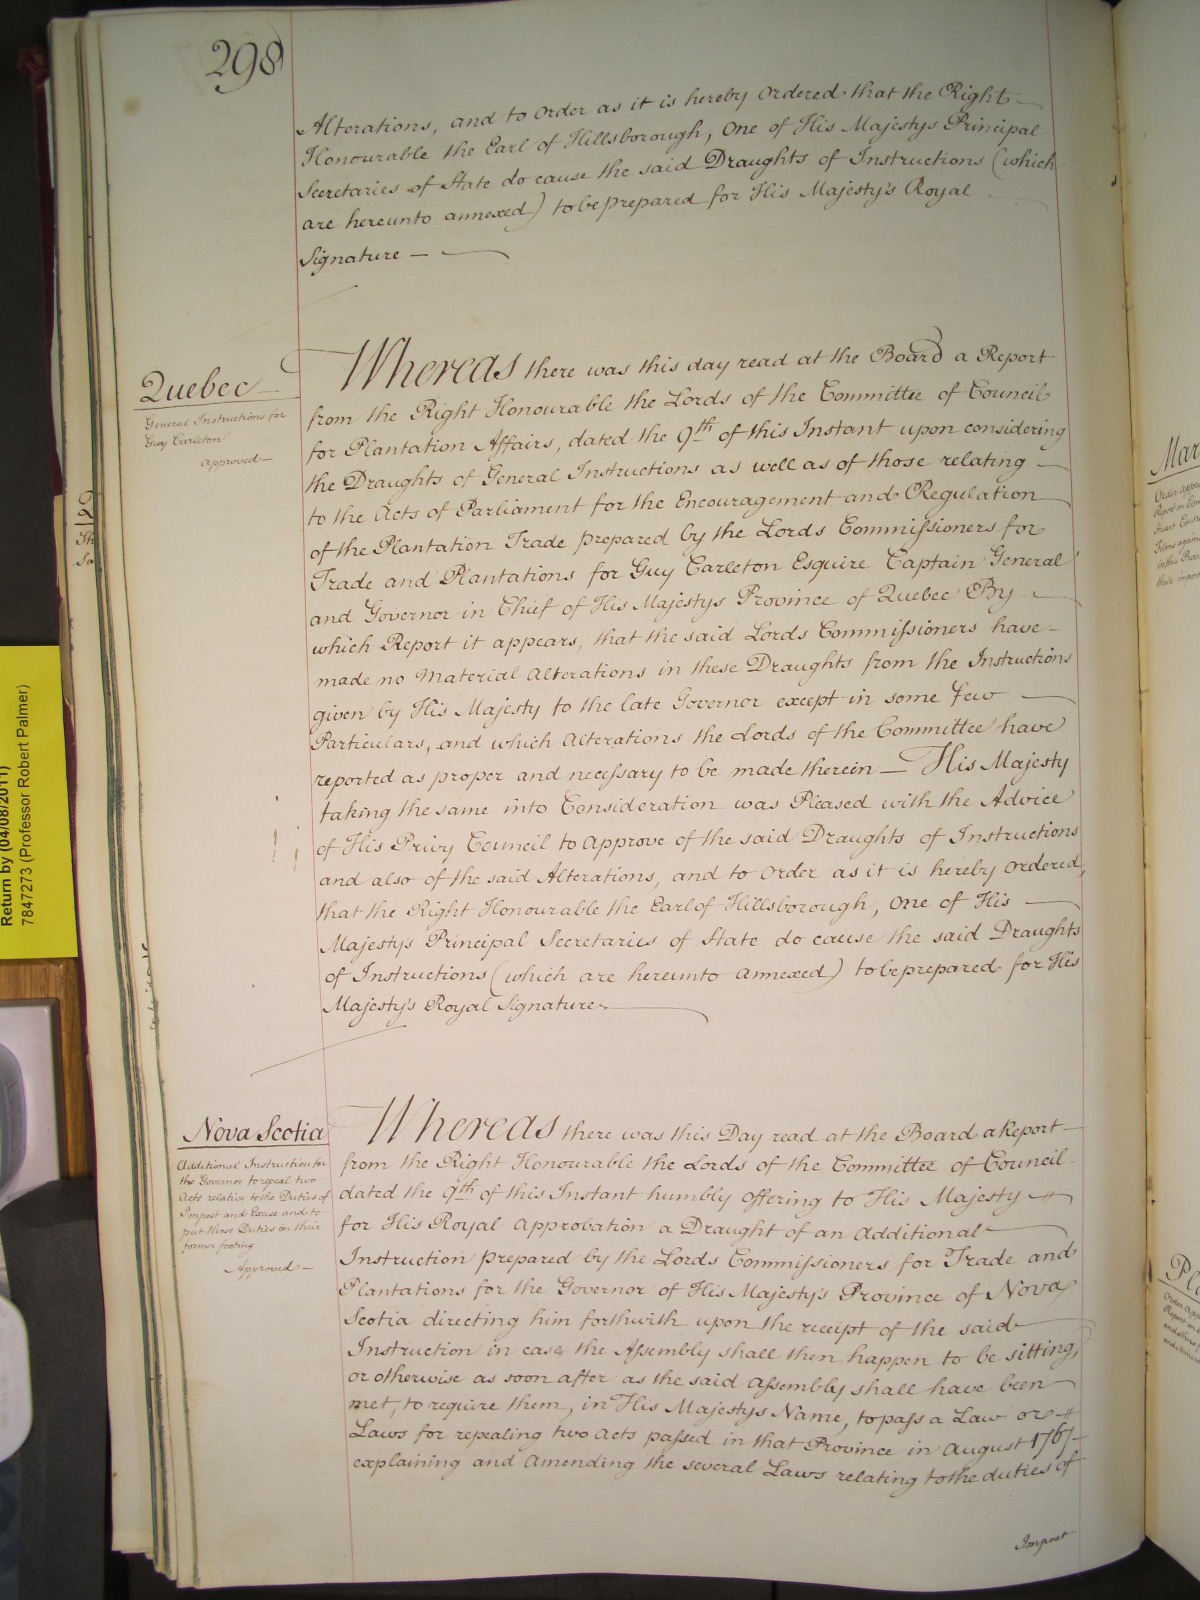 298
Alterations, and to order as it is hereby ordered that the Right
Honourable the Earl of Hillsborough, One of His Majestys Principal
Secretaries of State do cause the said Draughts of Instructions (which
are hereunto annexed) to be prepared for His Majesty's Royal
Signature
Quebec
General Instructions for
Guy Carleton
Approved
Whereas there was this day read at the Board a Report
from the Right Honourable the Lords of the Committee of Council
for Plantation Affairs, dated the 9th of this Instant upon considering
the Draughts of General Instructions as well as of those relating
to the Acts of Parliament for the Encouragement and Regulation
of the Plantation Trade prepared by the Lords Commissioners for
Trade and Plantations for Guy Carleton Esquire Captain General
and Governor in Chief of His Majestys Province of Quebec By
which Report it appears, that the said Lords Commissioners have
made no Material Alterations in these Draughts from the Instructions
given by His Majesty to the late Governor except in some few
Particulars, and which Alterations the Lords of the Committee have
reported as proper and necessary to be made therein His Majesty
taking the same into Consideration was Pleased with the Advice
of His Privy Council to approve of the said Draughts of Instructions
and also of the said Alterations, and to order as it is hereby ordered,
that the Right Honourable the Earl of Hillsborough, One of His
Majesty's Principal Secretaries of State do cause the said Draughts
of Instructions (which are hereunto annexed) to be prepared for His
Majesty's Royal Signature
Nova Scotia
Additional Instruction for
the Governor to repeal two
Acts relative to the Duties of
Impost and Excise and to
put those Duties on their
former footing
Approved
Whereas there was this Day read at the Board a Report
from the Right Honourable the Lords of the Committee of Council
dated the 9th of this Instant humbly offering to His Majesty
for His Royal Approbation a Draught of an Additional
Instruction prepared by the Lords Commissioners for Trade and
Plantations for the Governor of His Majesty's Province of Nova
Scotia directing him forthwith upon the receipt of the said
Instruction in case the Assembly shall then happen to be sitting,
or otherwise as soon after as the said Assembly shall have been
met, to require them, in His Majestys Name, to pass a Law or
Laws for repealing two Acts passed in that Province in August 1767
explaining and Amending the several Laws relating to the duties of
Impost
Return by (04/08/2011)
7847273 (Professor Robert Palmer)